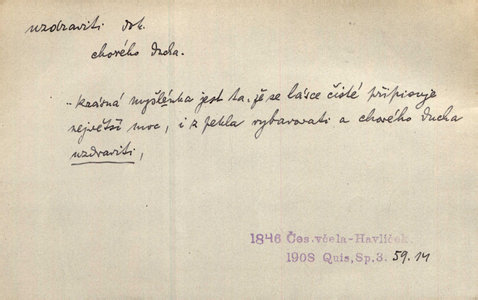 uzdraviti dok.
chorého ducha.
„Krásná myšlénka jest ta, že se lásce čisté připisuje
největší moc, i z pekla vybavovati a chorého ducha
uzdraviti,
1846 Čes. včela-Havlíček.
1908 Quis, Sp.3. 59.14